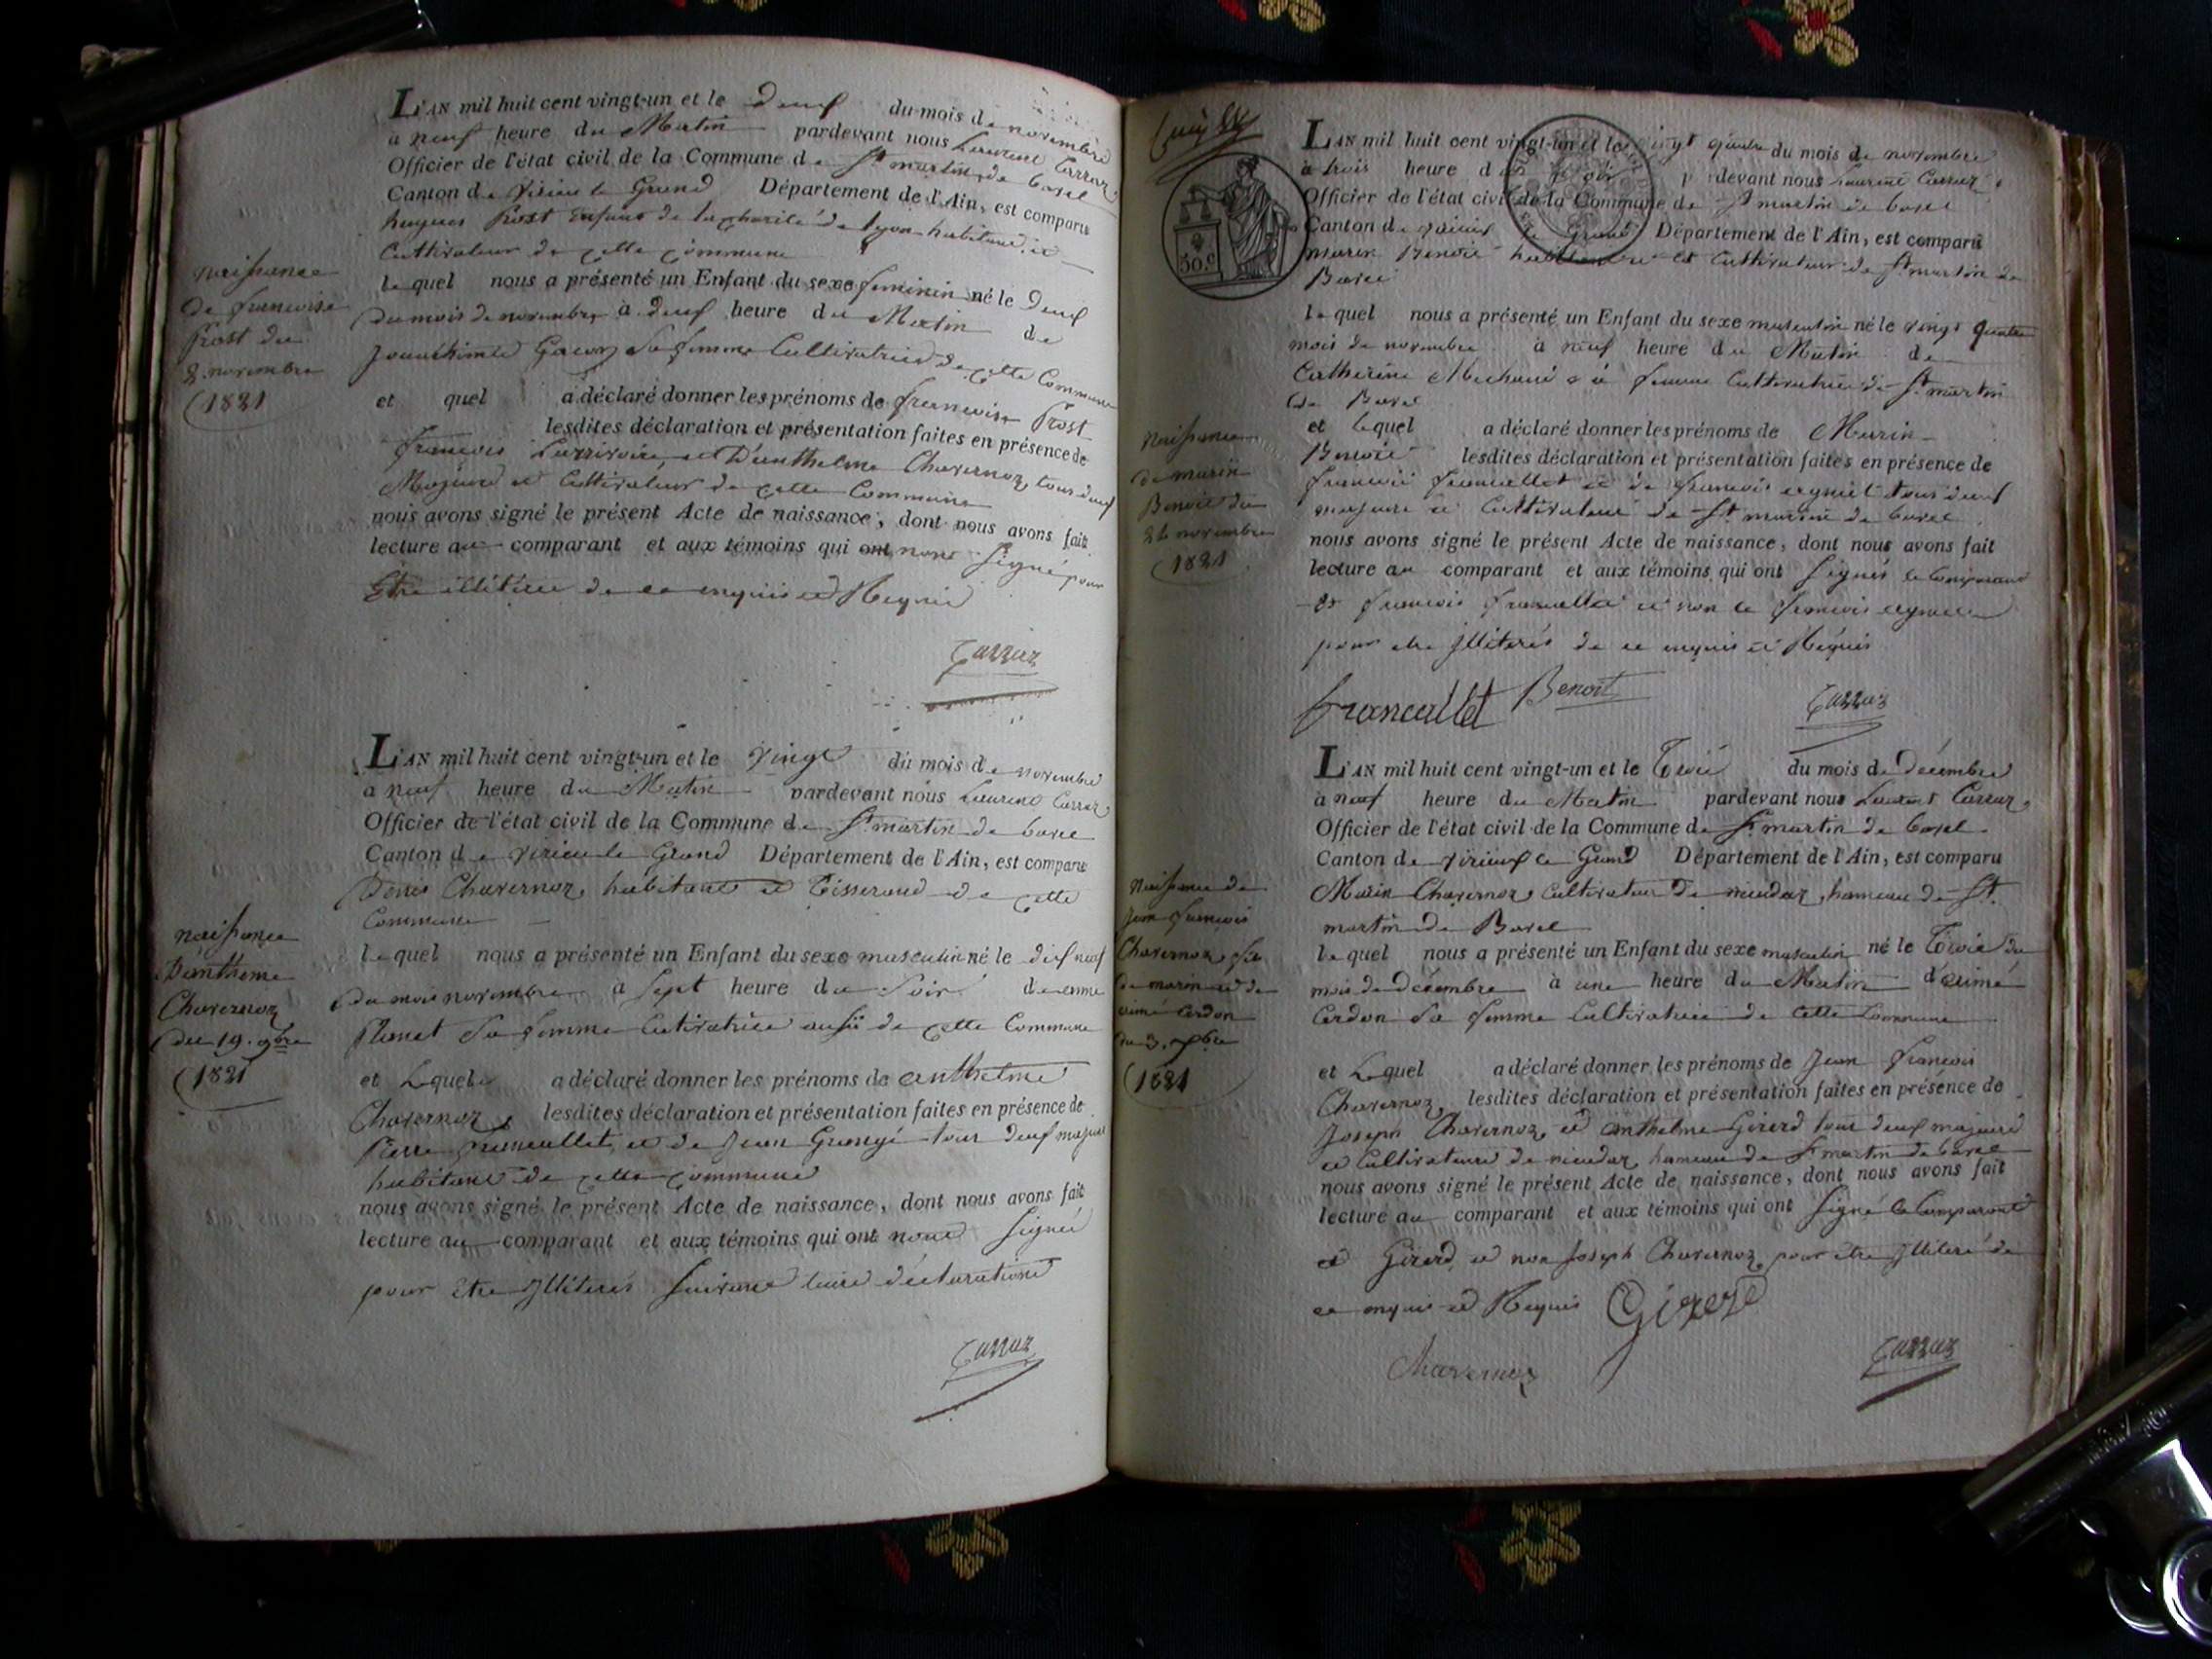 L'AN mil huit cent vingt-un et le Deux du mois de novembre
à neuf heure du Matin pardevant nous Laurent Carraz
Officier de l'état civil de la Commune de St martin de bavel
Canton de virieu le Grand Département de l'Ain, est comparu
hugues Prost Enfant de la charité de lyon habitant et
Cultivateur de cette commune
lequel nous a présenté un Enfant du sexe feminin né le Deux
du mois de novembre à deux heure du Matin de
sa femme Cultivatrice de cette Commune
et quel a déclaré donner les prénoms de francoise Prost
lesdites déclaration et présentation faites en présence de
francois Larrivoire, et D'anthelme Chavernoz, tous deux
Majeurs et Cultivateur de cette Commune
nous avons signé le présent Acte de naissance, dont nous avons fait
lecture au comparant et aux témoins qui ont non signé pour
Etre illiteré de ce enquis et Requis
Carraz
naissance
de francoise
Prost du
2 novembre
1821
L'AN mil huit cent vingt-un et le vingt du mois de novembre
à neuf heure du Matin pardevant nous Laurent Carraz
Officier de l'état civil de la Commune de St martin de bavel
Canton de virieu le Grand Département de l'Ain, est comparu
Denis Chavernoz, habitant et Tisserand de cette
Commune
lequel nous a présenté un Enfant du sexe masculin né le dix neuf
du mois novembre à sept heure du Soir de anne
Planet Sa femme Cultivatrice aussi de cette Commune
et Lequel a déclaré donner les prénoms de anthelme
Chavernoz, lesdites déclaration et présentation faites en présence de
Pierre francallet, et de Jean Grangé tous deux majeur
habitant de cette commune
nous avons signé le présent Acte de naissance, dont nous avons fait
lecture au comparant et aux témoins qui ont non Signé
pour être Illiterés Suivant leurs déclarations
Carraz
naissance
Danthelme
Chavernoz
du 19. 9bre
1821
50.c
L'AN mil huit cent vingt-un et le vingt quatre du mois de novembre
à trois heure du Soir pardevant nous Laurent Carraz
Officier de l'état civil de la Commune de St martin de bavel
Canton de virieux le Grand Département de l'Ain, est comparu
marin Benoit habitant et Cultivateur de St martin de
Bavel
lequel nous a présenté un Enfant du sexe masculin né le vingt quatre
mois de novembre à neuf heure du Matin de
Catherine sa femme Cultivatrice de St martin
de Bavel
et lequel a déclaré donner les prénoms de Marin
Benoit lesdites déclaration et présentation faites en présence de
francois francallet et de francois tous deux
majeurs et Cultivateur de St martin de bavel
nous avons signé le présent Acte de naissance, dont nous avons fait
lecture au comparant et aux témoins qui ont Signés le Comparant
et francois francallet et non le francois
pour etre Illiterés de ce enquis et Requis
francallet Benoit Carraz
naissance
de marin
Benoit du
24 novembre
1821
L'AN mil huit cent vingt-un et le Trois du mois de Décembre
à neuf heure du Matin pardevant nous Laurent Carraz
Officier de l'état civil de la Commune de St martin de bavel
Canton de virieux le Grand Département de l'Ain, est comparu
Marin Chavernoz, Cultivateur de hameau de St
martin de Bavel
lequel nous a présenté un Enfant du sexe masculin né le Trois du
mois de Décembre à une heure du Matin d'aimé
Cerdon sa femme Cultivatrice de cette Commune
et Lequel a déclaré donner les prénoms de Jean francois
Chavernoz, lesdites déclaration et présentation faites en présence de
Joseph Chavernoz, et anthelme Girerd tous deux majeurs
et Cultivateurs de hameau de St martin de bavel
nous avons signé le présent Acte de naissance, dont nous avons fait
lecture au comparant et aux témoins qui ont Signé le Comparant
et Girerd, et non Joseph Chavernoz, pour être Illiteré de
ce enquis et Requis Girerd
Chavernoz Carraz
naissance de
jean francois
Chavernoz, fils
de marin et de
aimé Cerdon
du 3. xbre
1821